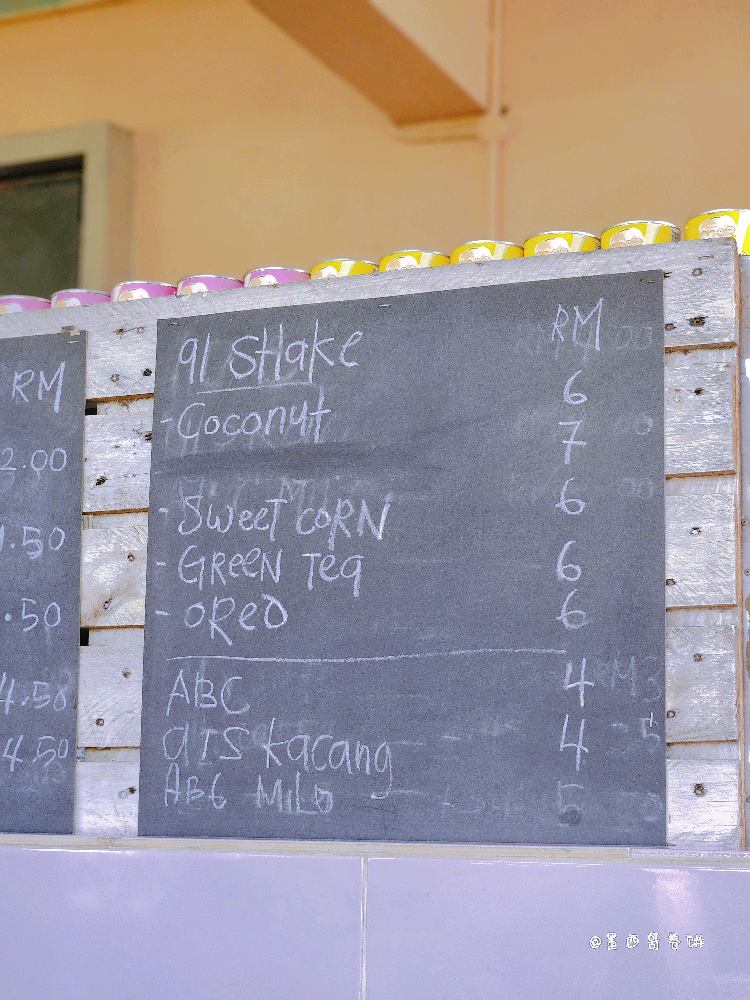 RM
2.00
.50
.50
4.50
4.50
91 SHake
RM
- Coconut
6
7
- Sweet coRN
6
- GReeN Tea
6
- oReo
6
ABC
4
aIS kacang
4
ABC MiLo
5
@墨西哥卷饼